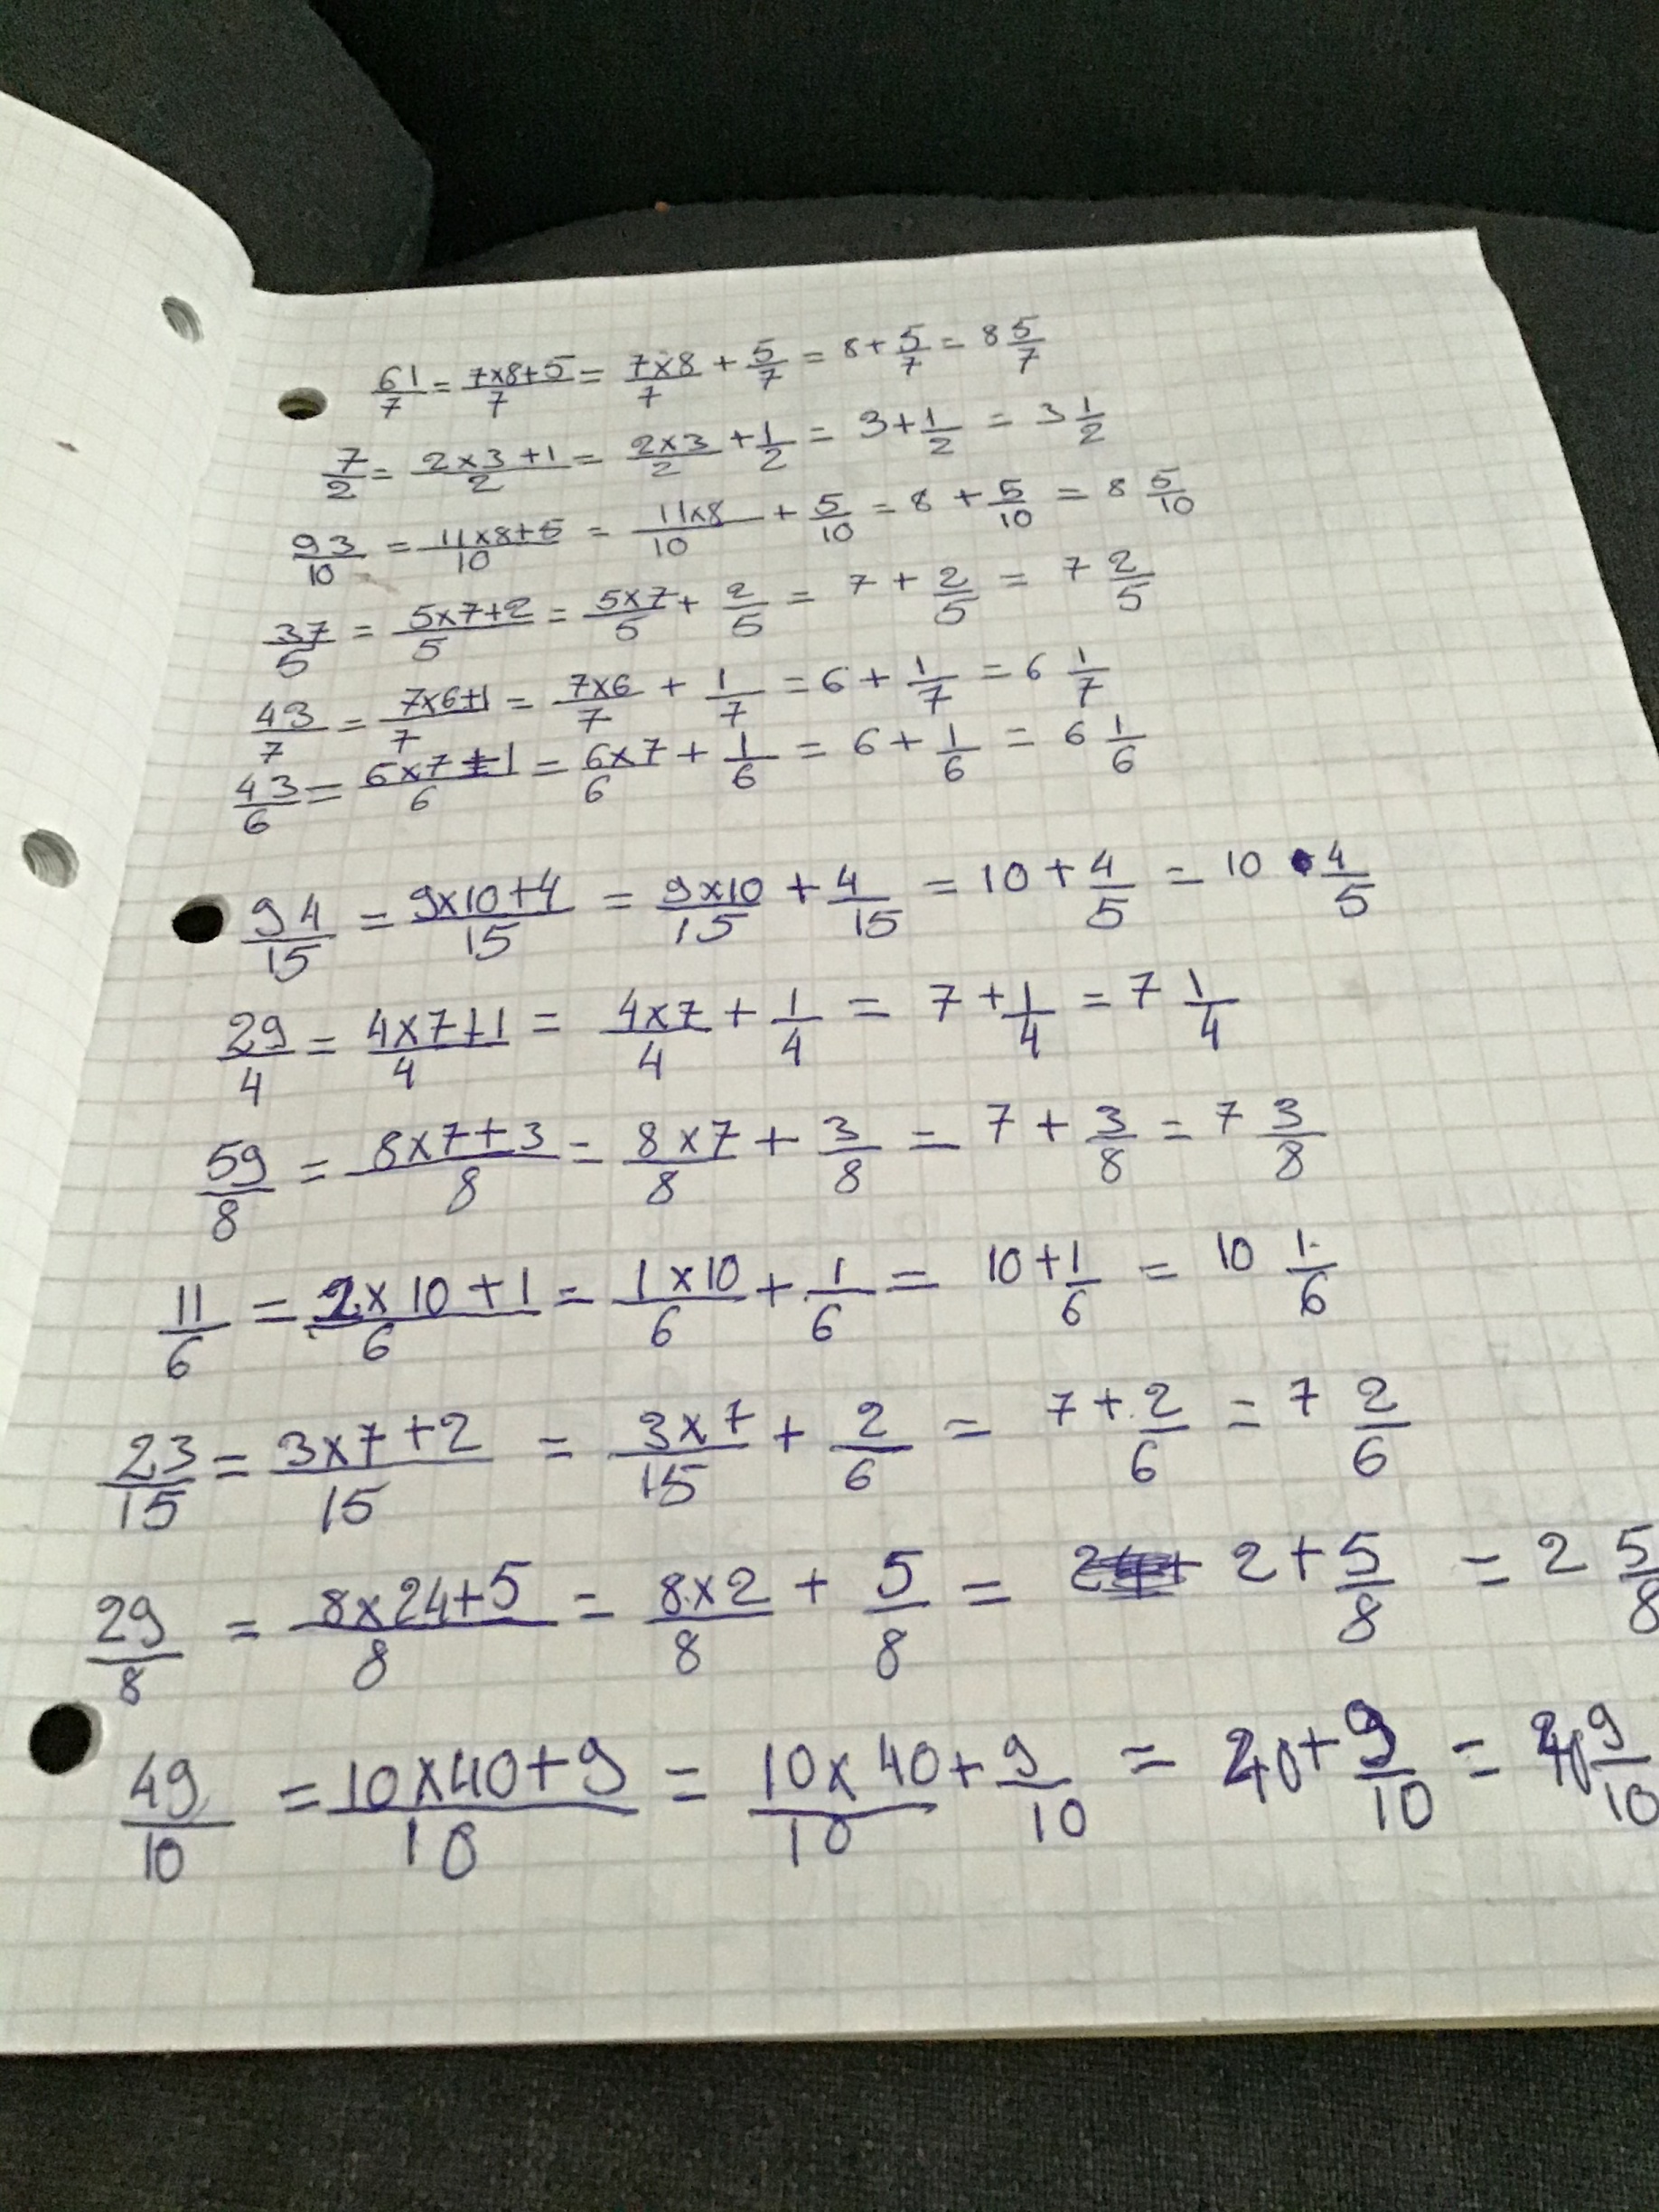 61/7 = 7x8+5/7 = 7x8/7 + 5/7 = 8+5/7 = 8 5/7
7/2 = 2x3+1/2 = 2x3/2 + 1/2 = 3+1/2 = 3 1/2
93/10 = 11x8+5/10 = 11x8/10 + 5/10 = 8 + 5/10 = 8 5/10
37/5 = 5x7+2/5 = 5x7/5 + 2/5 = 7 + 2/5 = 7 2/5
43/7 = 7x6+1/7 = 7x6/7 + 1/7 = 6 + 1/7 = 6 1/7
43/6 = 6x7+1/6 = 6x7/6 + 1/6 = 6+1/6 = 6 1/6
94/15 = 9x10+4/15 = 9x10/15 + 4/15 = 10+4/5 = 10 4/5
29/4 = 4x7+1/4 = 4x7/4 + 1/4 = 7+1/4 = 7 1/4
59/8 = 8x7+3/8 = 8x7/8 + 3/8 = 7+3/8 = 7 3/8
11/6 = 2x10+1/6 = 1x10/6 + 1/6 = 10+1/6 = 10 1/6
23/15 = 3x7+2/15 = 3x7/15 + 2/6 = 7+2/6 = 7 2/6
29/8 = 8x24+5/8 = 8x2/8 + 5/8 = 2+5/8 = 2 5/8
49/10 = 10x40+9/10 = 10x40/10 + 9/10 = + 9/10 = 9/10